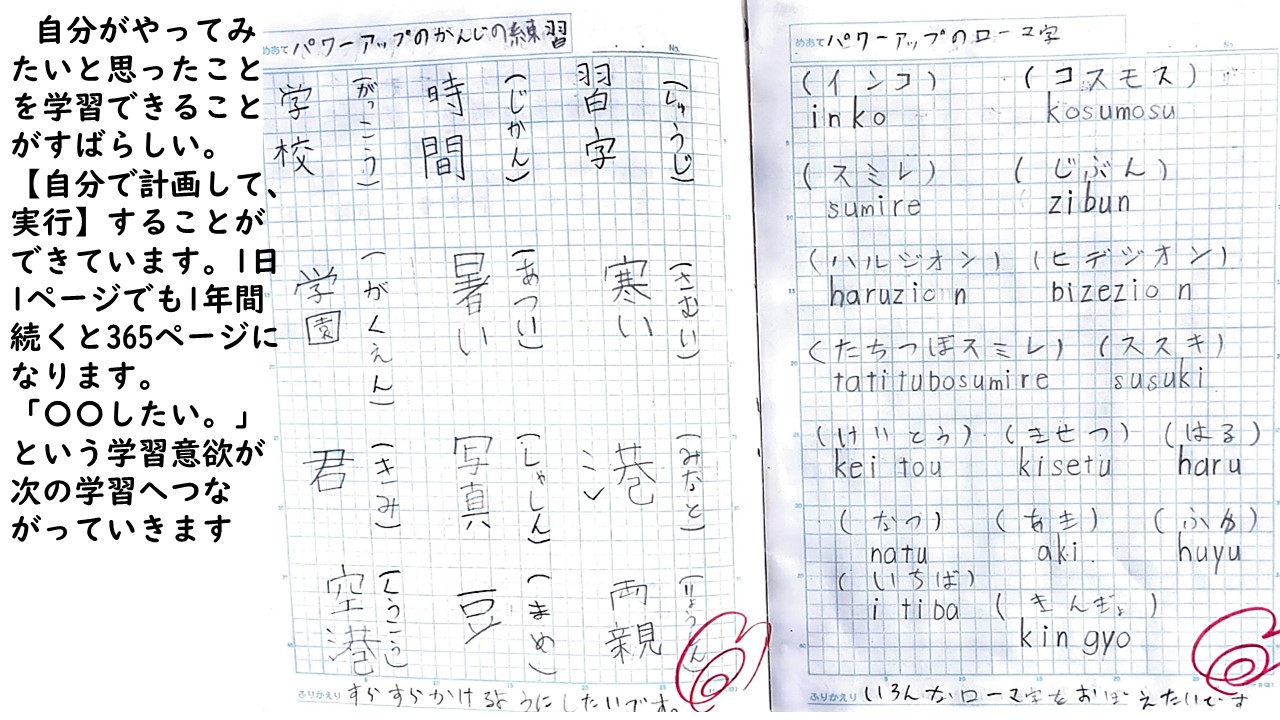 自分がやってみ
たいと思ったこと
を学習できること
がすばらしい。
【自分で計画して、
実行】することが
できています。1日
1ページでも1年間
続くと365ページに
なります。
「〇〇したい。」
という学習意欲が
次の学習へつな
がっていきます
めあて パワーアップのかんじの練習
No.
(しゅうじ)
習字
(じかん)
時間
(がっこう)
学校
(さむい)
寒い
(あつい)
暑い
(がくえん)
学園
(みなと)
港
(しゃしん)
写真
(きみ)
君
(りょうしん)
両親
(まめ)
豆
(くうこう)
空港
ふりかえり すらすらかけるようにしたいです。
めあて パワーアップのローマ字
No.
(インコ) (コスモス)
inko kosumosu
(スミレ) (じぶん)
sumire zibun
(ハルジオン) (ヒデジオン)
haruzion bizezion
(たちつぼスミレ) (ススキ)
tatitubosumire susuki
(けいとう) (きせつ) (はる)
keitou kisetu haru
(なつ) (あき) (ふゆ)
natu aki. huyu
(いちば)
itiba (きんぎょ)
kingyo
ふりかえり いろんなローマ字をおぼえたいです